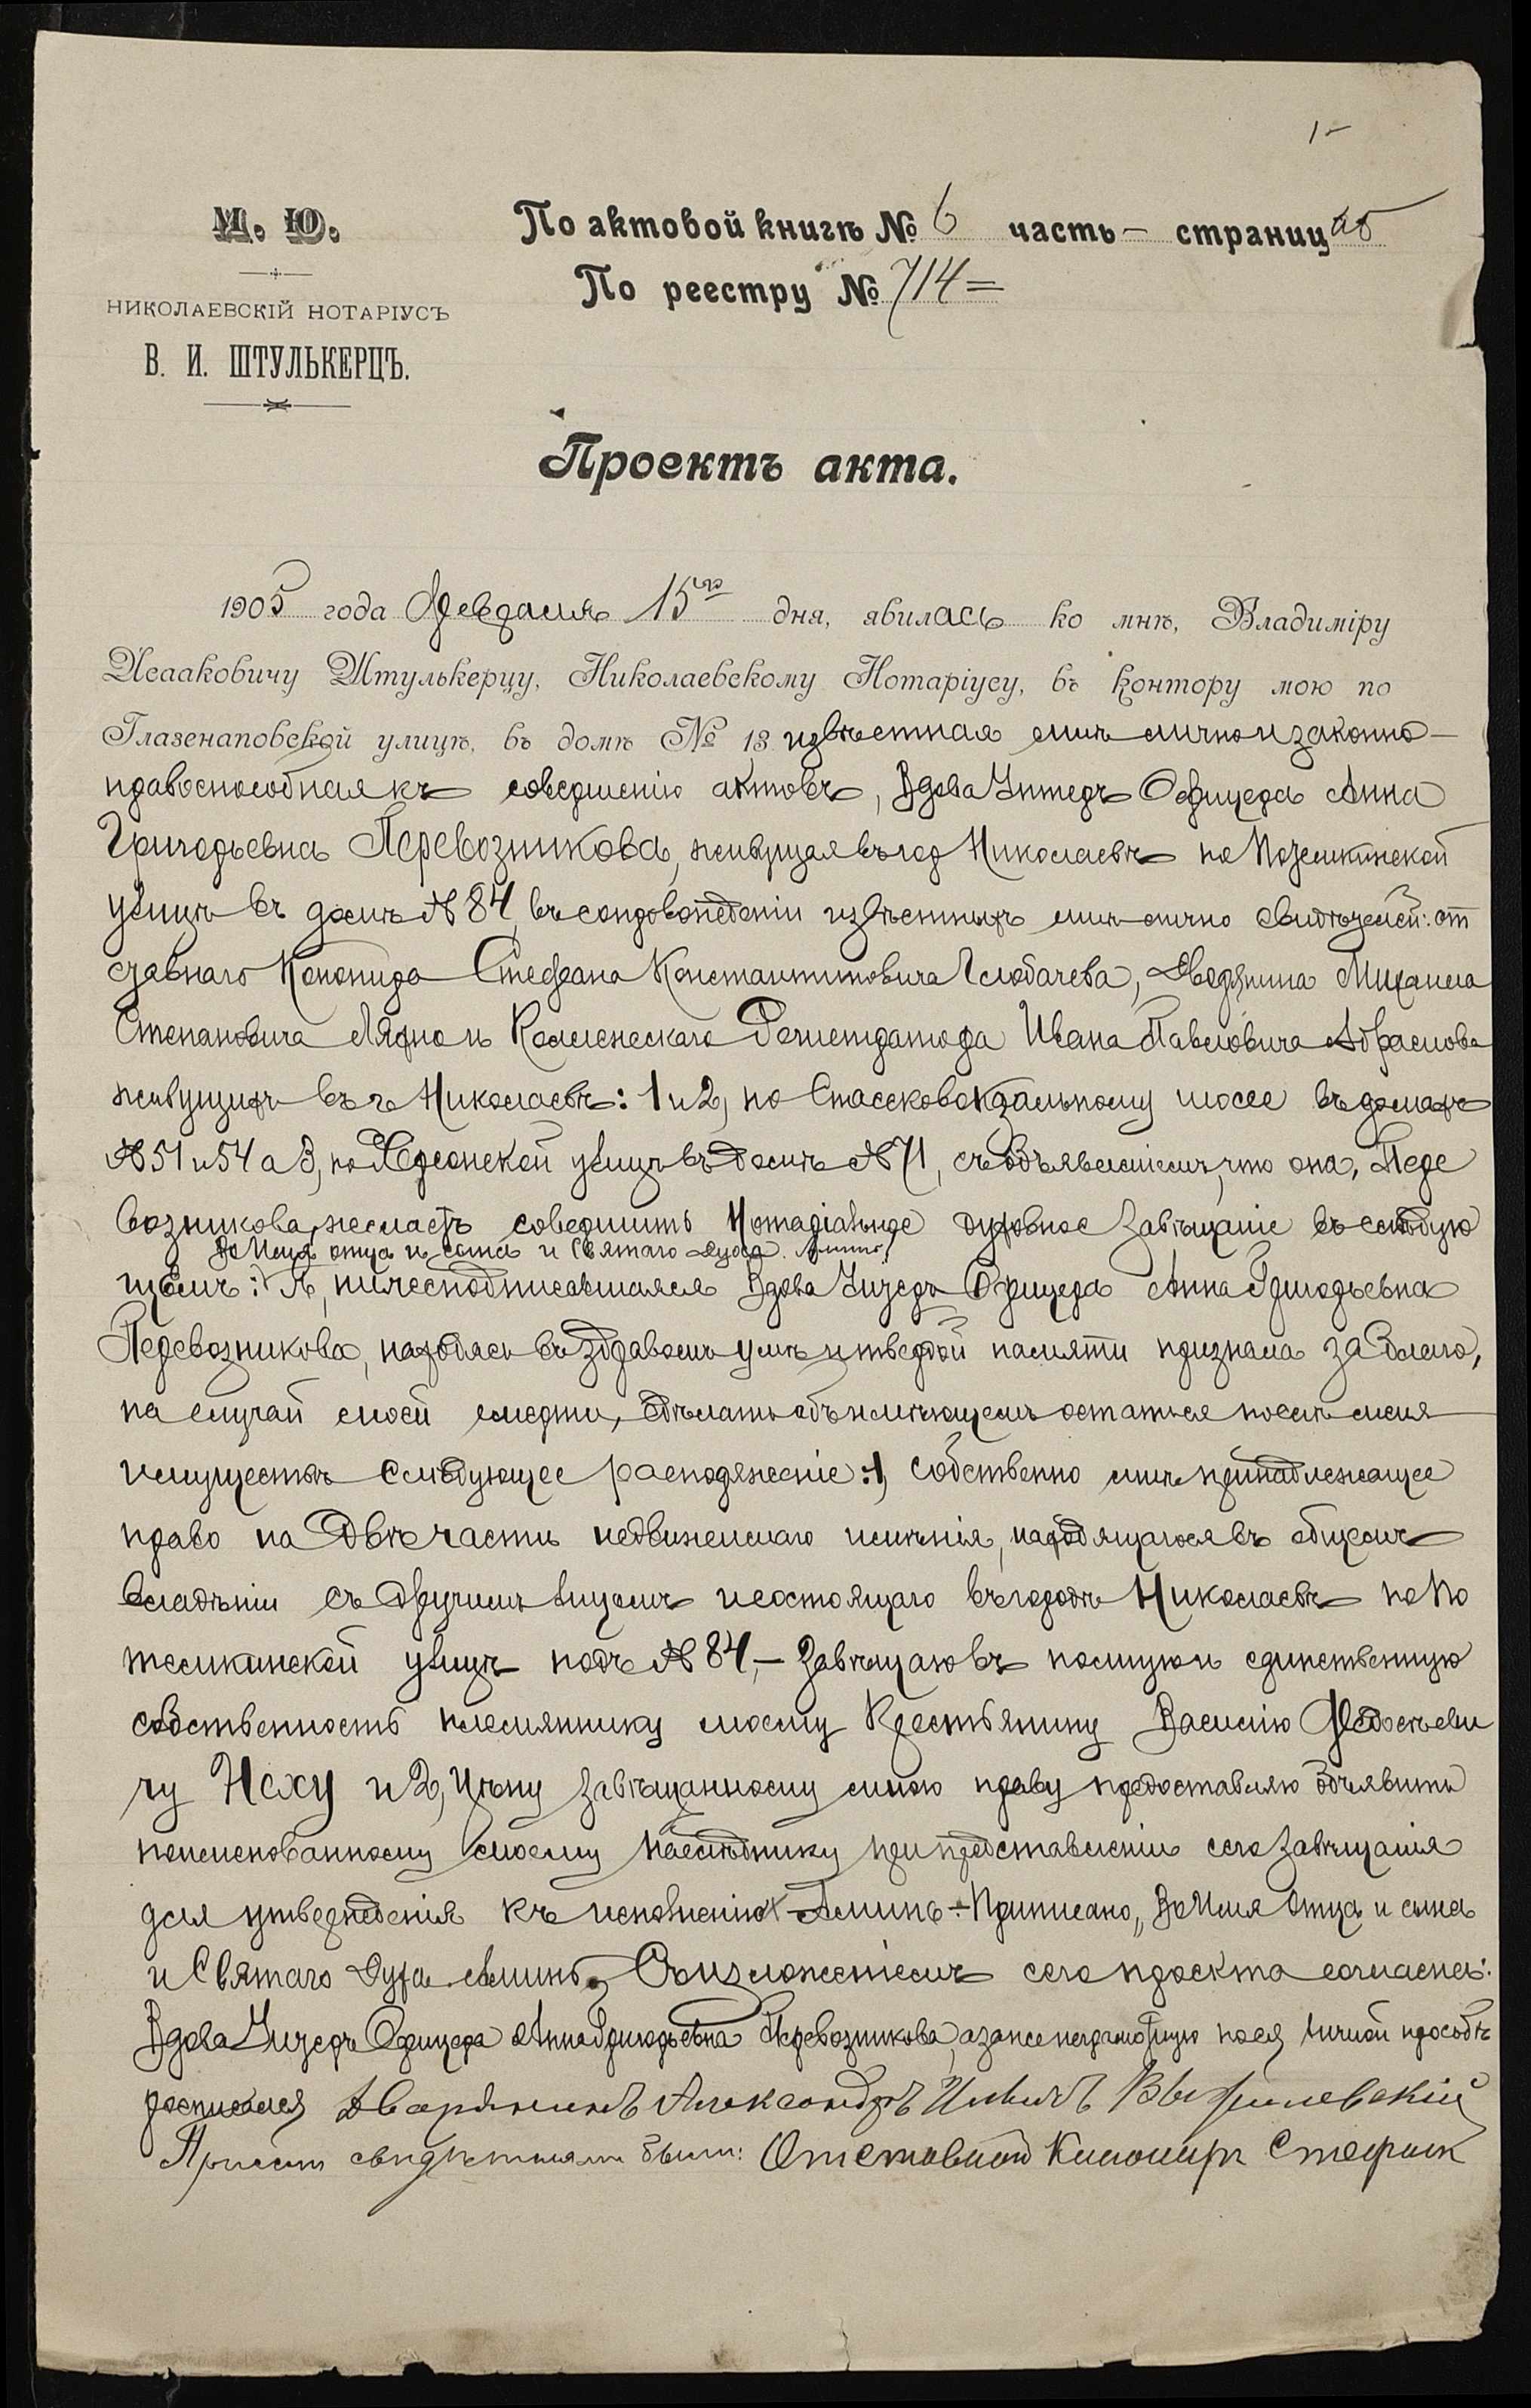 1
М. Ю.
НИКОЛАЕВСКІЙ НОТАРІУСЪ
В. И. ШТУЛЬКЕРЦЪ.
По актовой книгѣ № 6 часть — страниц
По реестру № 714 =
Проектъ акта.
1905 года Февраля 15го дня, явилась ко мнѣ, Владиміру
Исааковичу Штулькерцу, Николаевскому Нотаріусу, въ контору мою по
Глазенаповской улицѣ, въ домѣ № 13 извѣстная мнѣ лично и законно-
правоспособная къ совершенію актовъ, Вдова Унтеръ Офицера Анна
Григорьевна Перевозникова, живущая въ гор Николаевѣ по Потемкинской
улицѣ въ домѣ № 84, въ сопровожденіи извѣстныхъ мнѣ лично свидѣтелей: от
ставнаго Канонира Стефана Константиновича Глобачева, Дворянина Михаила
Степановича Ляхно и Коллежскаго Регистратора Ивана Павловича Абрамова
живущихъ въ г Николаевѣ: 1 и 2, по Спасскововкзальному шоссе въ домахъ
№ 51 и 54 а 3, по Херсонской улицѣ въ домѣ № 71, съ объявленіемъ, что она, Пере
возникова, желаетъ совершить Нотаріальное духовное завѣщаніе въ слѣдую
Во Имя отца и сына и Святаго Духа. Аминь,
щемъ: Я, нижеподписавшаяся Вдова Унтеръ Офицера Анна Григорьевна
Перевозникова, находясь въ здравомъ умѣ и твердой памяти признала за благо,
на случай моей смерти, сдѣлать объ имѣющемъ остаться послѣ меня
имуществѣ слѣдующее распоряженіе: 1, Собственно мнѣ принадлежащее
право на двѣ части недвижимаго имѣнія, находящагося въ общемъ
владѣніи съ другимъ лицемъ и состоящаго въ городѣ Николаевѣ по По
темкинской улицѣ подъ № 84, — завѣщаю въ полную и единственную
собственность племяннику моему Крестьянину Василію Федосѣеви
чу Неху и 2, Цѣну завѣщанному мною праву предоставляю объявить
поименованному моему наслѣднику при представленіи сего завѣщанія
для утвержденія къ исполненію Аминь. Приписано „Во Имя Отца и сына
и Святаго Духа Аминь" Съ изложеніемъ сего проекта согласна:
Вдова Унтеръ Офицера Анна Григорьевна Перевозникова, а за нее неграмотную по ея личной просьбѣ
росписался Дворянинъ Александръ Ильичъ
При семъ свидѣтелями были: Отставной Канониръ Стефанъ